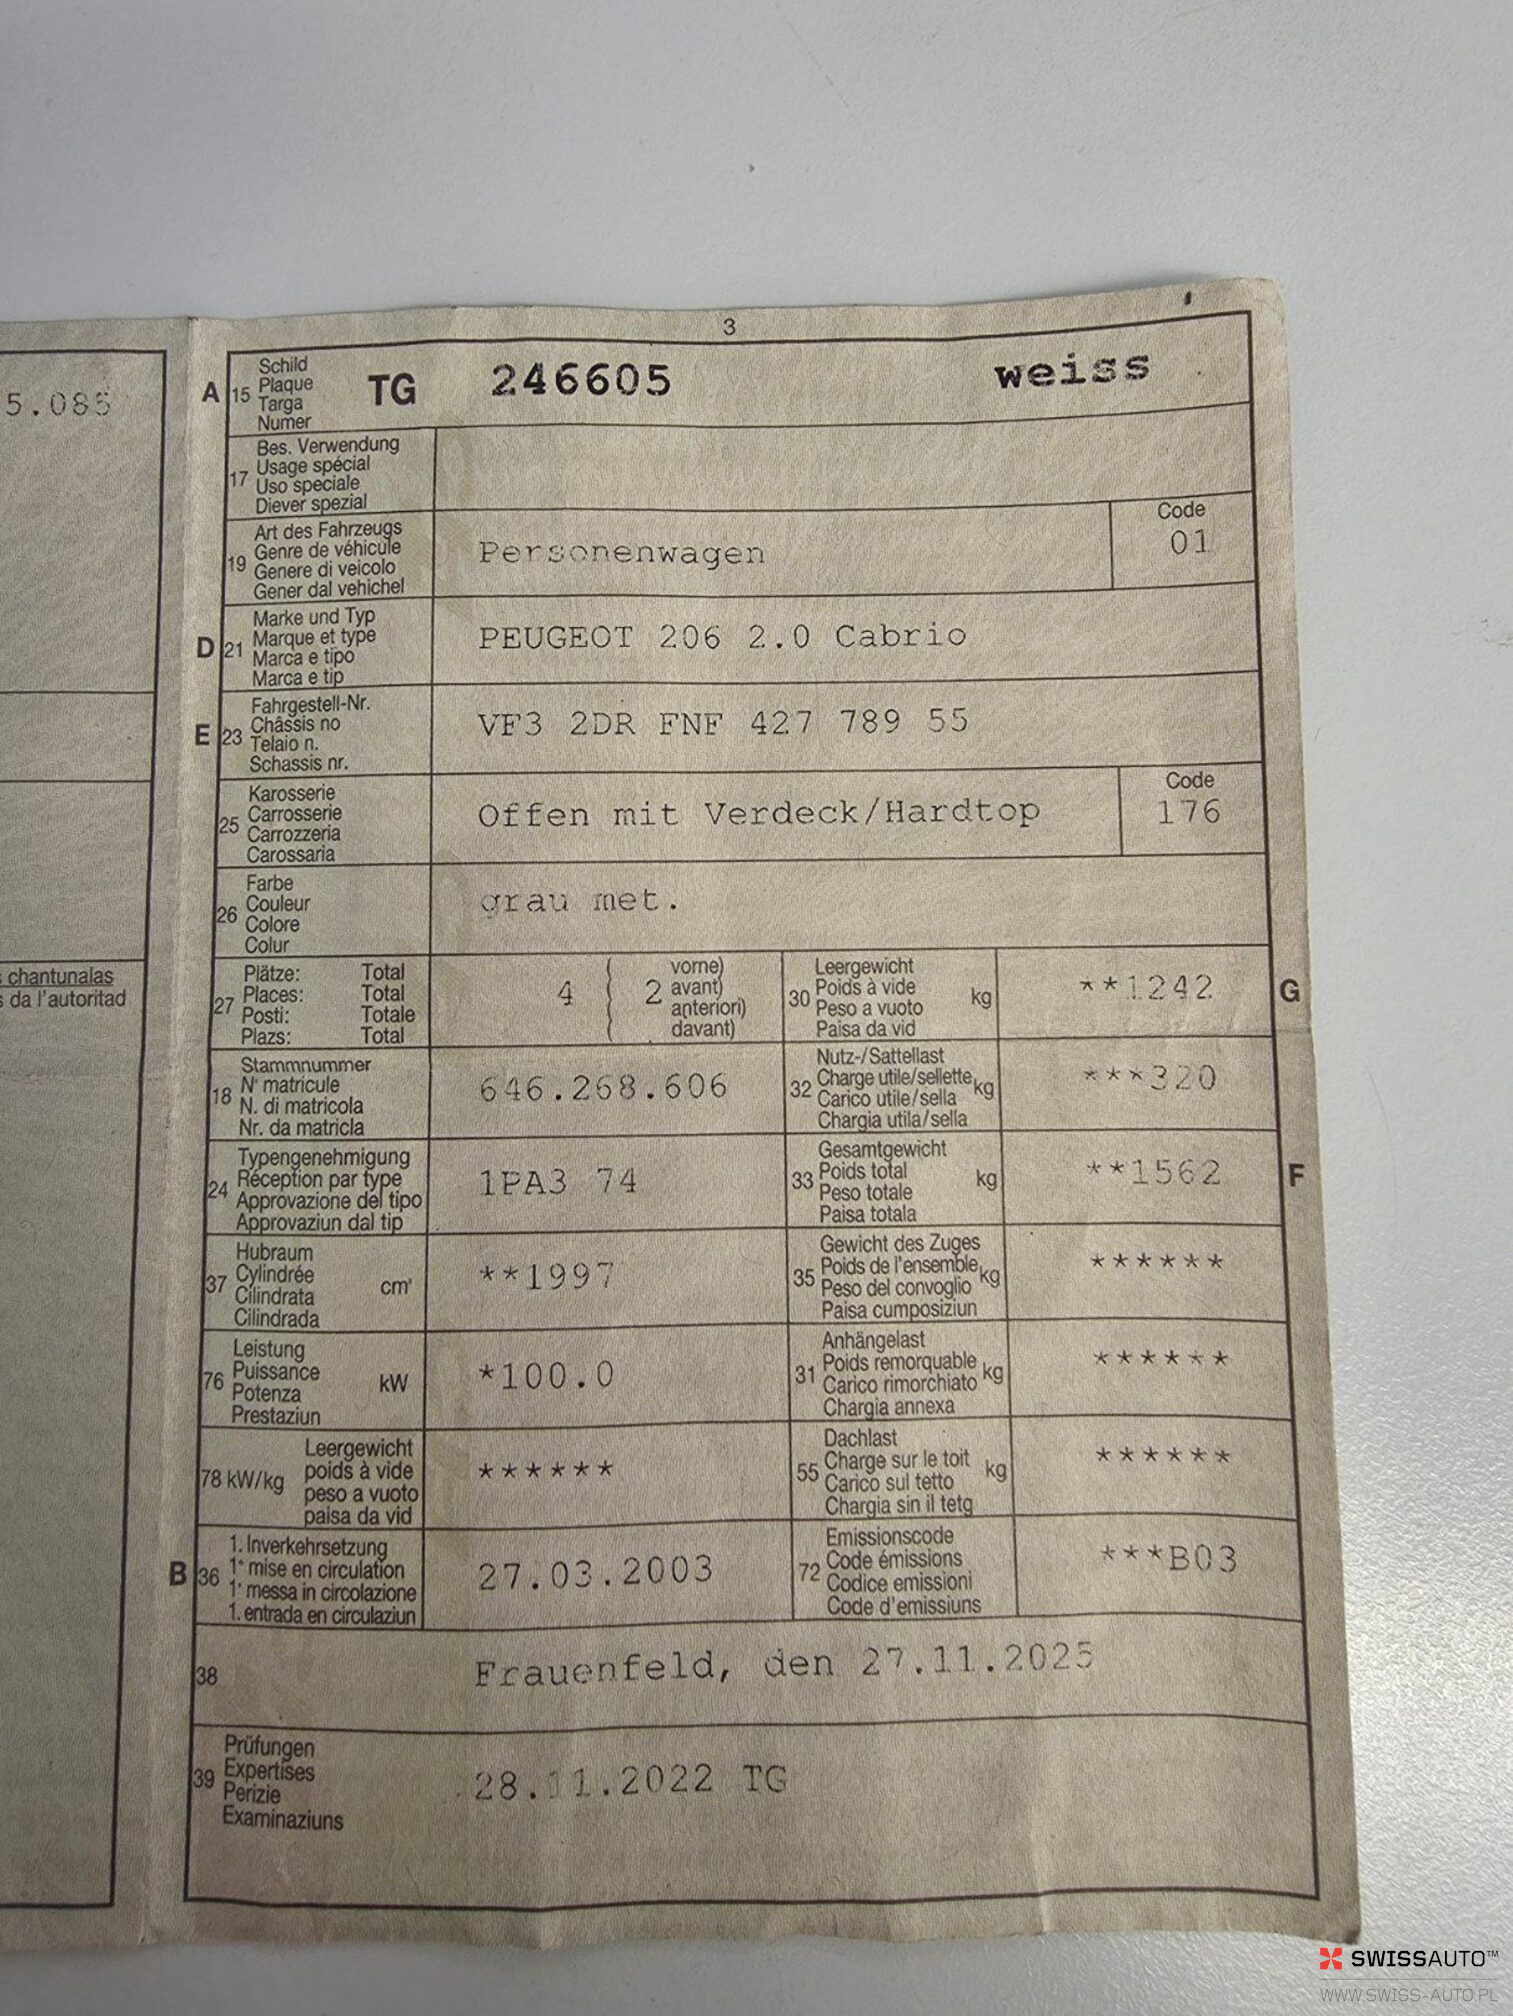 3
5.085
A 15 Schild
Plaque
Targa
Numer
TG 246605 weiss
17 Bes. Verwendung
Usage spécial
Uso speciale
Diever spezial
19 Art des Fahrzeugs
Genre de véhicule
Genere di veicolo
Gener dal vehichel
Personenwagen
Code
01
D 21 Marke und Typ
Marque et type
Marca e tipo
Marca e tip
PEUGEOT 206 2.0 Cabrio
E 23 Fahrgestell-Nr.
Châssis no
Telaio n.
Schassis nr.
VF3 2DR FNF 427 789 55
25 Karosserie
Carrosserie
Carrozzeria
Carossaria
Offen mit Verdeck/Hardtop
Code
176
26 Farbe
Couleur
Colore
Colur
grau met.
chantunalas
da l'autoritad
27 Plätze: Total
Places: Total
Posti: Totale
Plazs: Total
4 ( 2 vorne)
avant)
anteriori)
davant)
30 Leergewicht
Poids à vide
Peso a vuoto
Paisa da vid
kg **1242 G
18 Stammnummer
N° matricule
N. di matricola
Nr. da matricla
646.268.606
32 Nutz-/Sattellast
Charge utile/sellette
Carico utile/sella
Chargia utila/sella
kg ***320
24 Typengenehmigung
Réception par type
Approvazione del tipo
Approvaziun dal tip
1PA3 74
33 Gesamtgewicht
Poids total
Peso totale
Paisa totala
kg **1562 F
37 Hubraum
Cylindrée
Cilindrata
Cilindrada
cm³ **1997
35 Gewicht des Zuges
Poids de l'ensemble
Peso del convoglio
Paisa cumposiziun
kg ******
76 Leistung
Puissance
Potenza
Prestaziun
kW *100.0
31 Anhängelast
Poids remorquable
Carico rimorchiato
Chargia annexa
kg ******
78 kW/kg Leergewicht
poids à vide
peso a vuoto
paisa da vid
******
55 Dachlast
Charge sur le toit
Carico sul tetto
Chargia sin il tetg
kg ******
B 36 1. Inverkehrsetzung
1° mise en circulation
1° messa in circolazione
1. entrada en circulaziun
27.03.2003
72 Emissionscode
Code émissions
Codice emissioni
Code d'emissiuns
***B03
38 Frauenfeld, den 27.11.2025
39 Prüfungen
Expertises
Perizie
Examinaziuns
28.11.2022 TG
SWISSAUTO™
WWW.SWISS-AUTO.PL